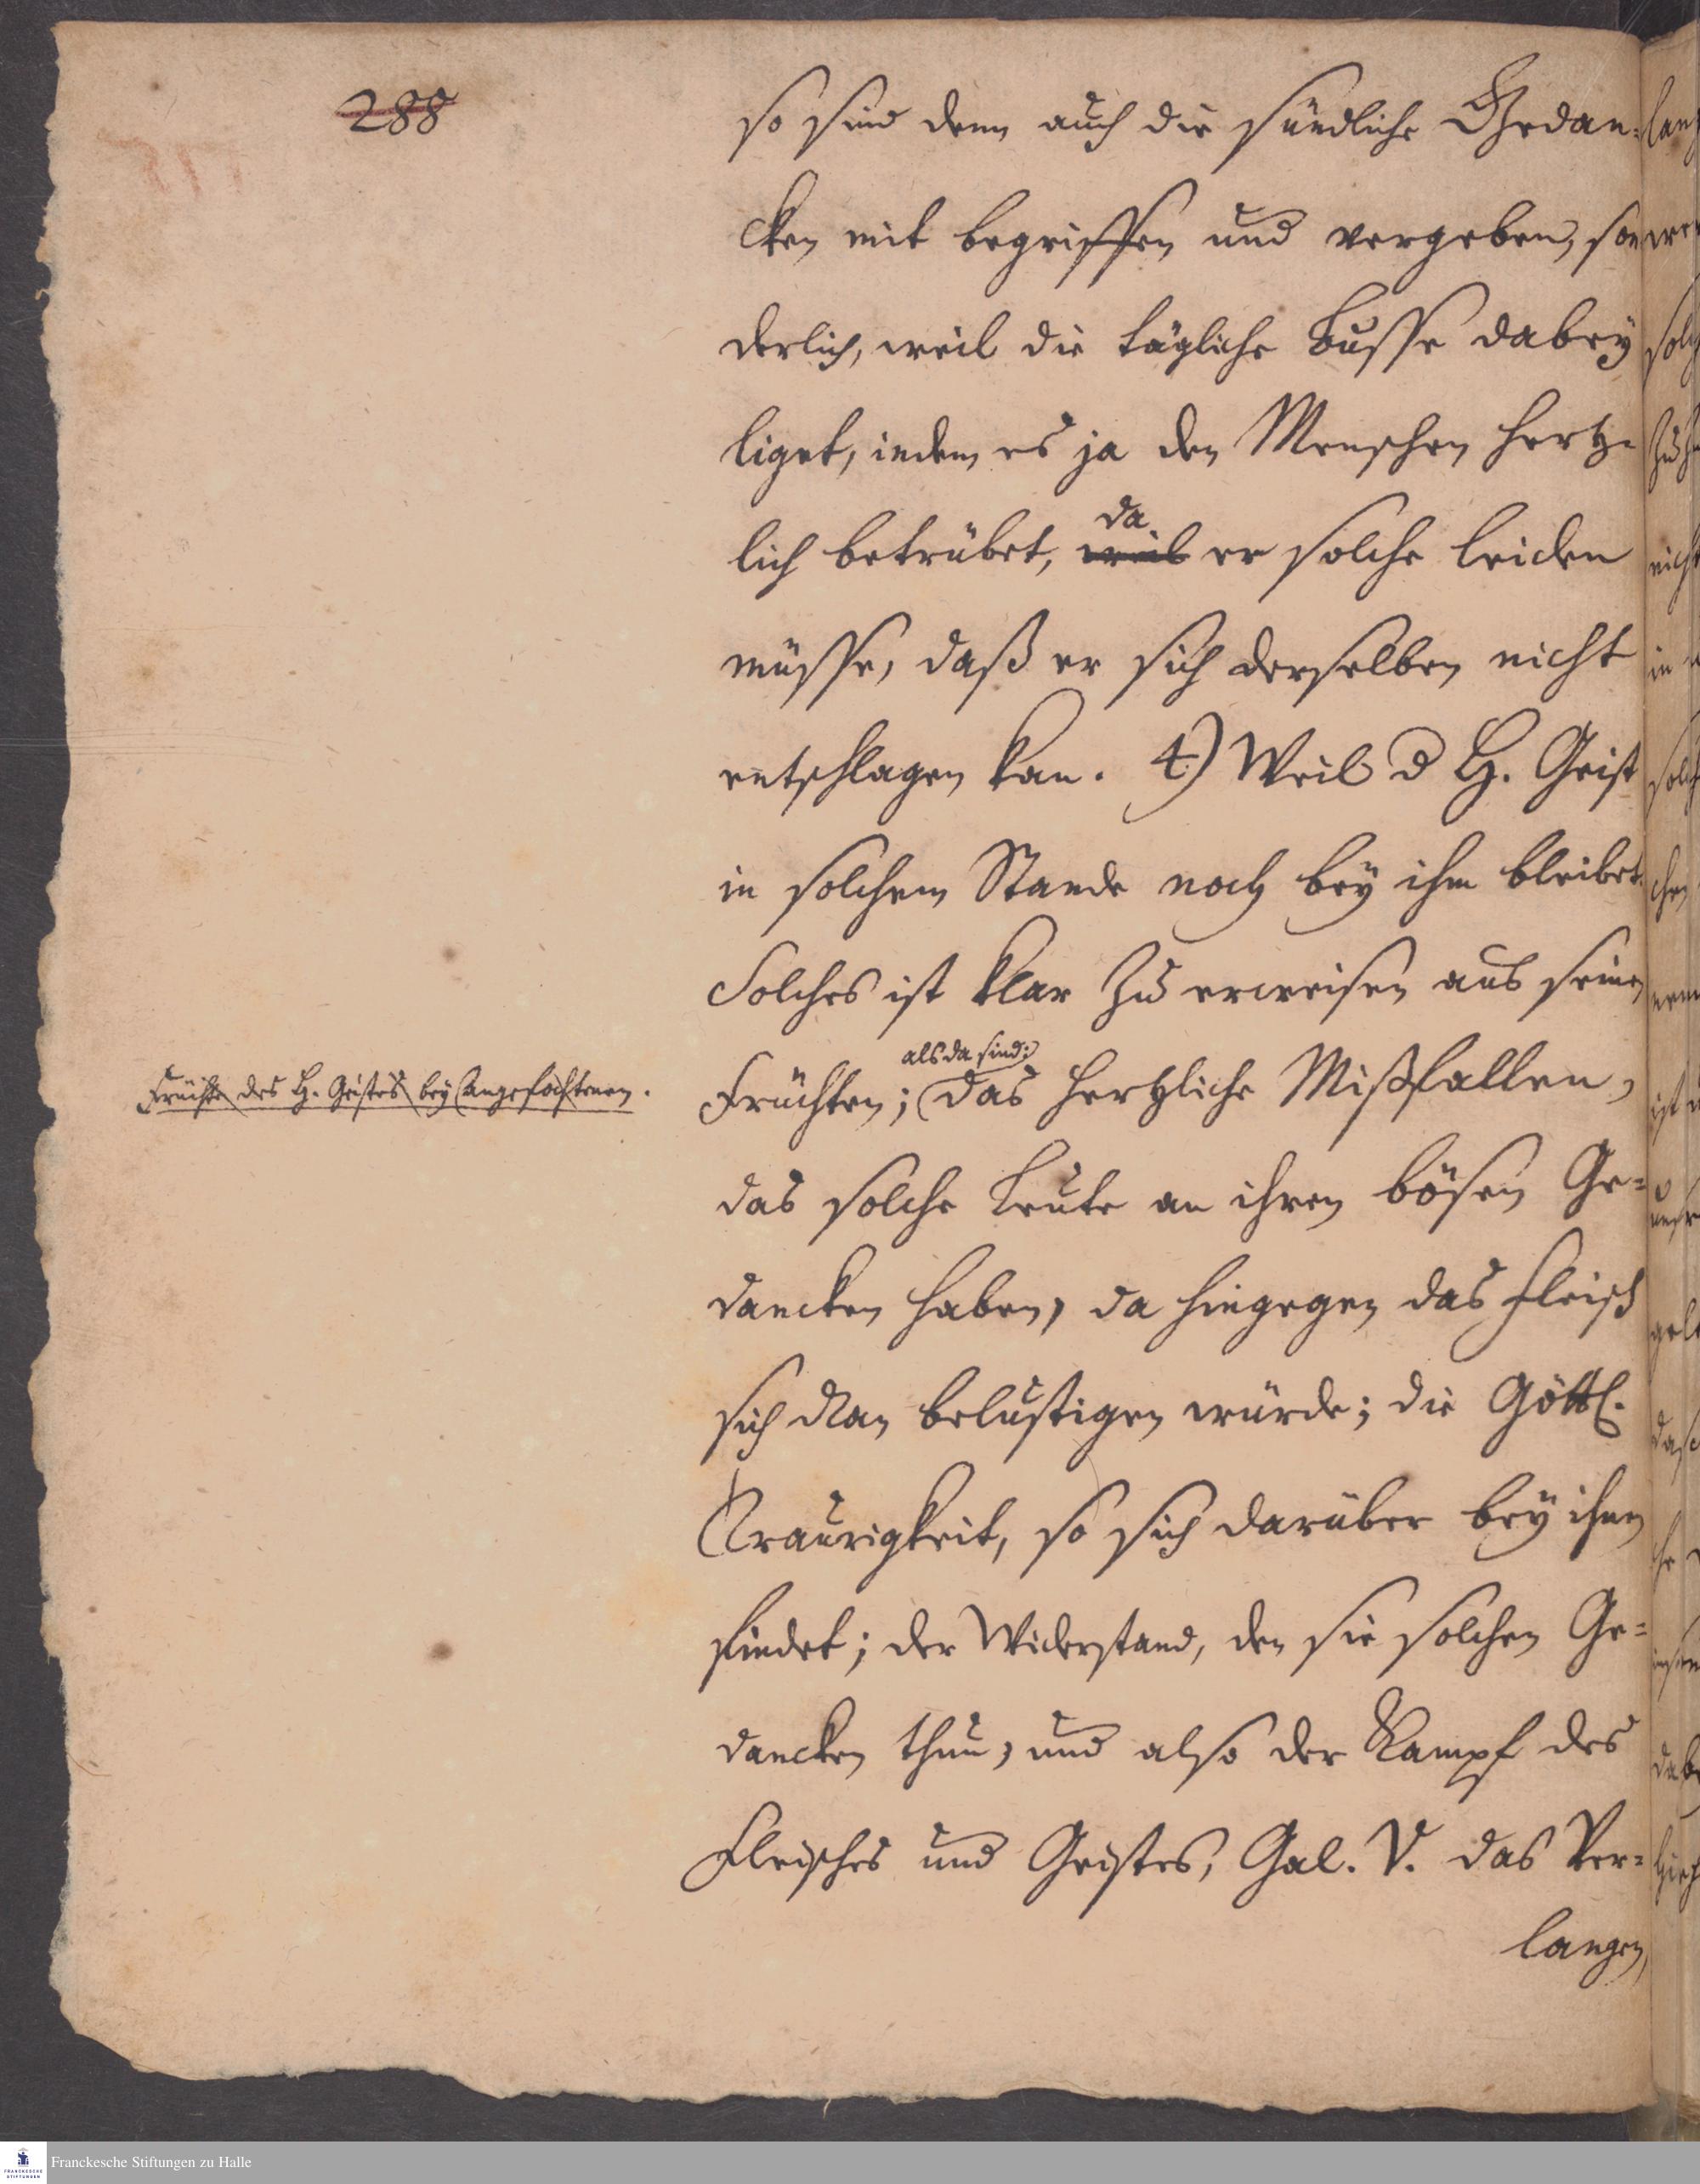 288
so sind denn auch die sündliche Gedan-
cken mit begriffen und vergeben, son
derlich, weil die tägliche Busse dabey
liget, indem es ja den Menschen hertz-
lich betrübet, weil da er solche leiden
müsse, daß er sich derselben nicht
entschlagen kan. 4) Weil d H. Geist
in solchem Stande noch bey ihm bleibet.
Solches ist klar zu erweisen aus seinen
als da sind:
Früchte des H. Geistes bey Angefochtenen.
Früchten; das hertzliche Mißfallen,
das solche Leute an ihren bösen Ge-
dancken haben, da hingegen das Fleisch
sich dran belustigen würde; die Göttl.
Traurigkeit, so sich darüber bey ihnen
findet; der Widerstand, den sie solchen Ge-
dancken thun, und also der Kampf des
Fleisches und Geistes, Gal. V. das Ver-
langen,
Franckesche Stiftungen zu Halle